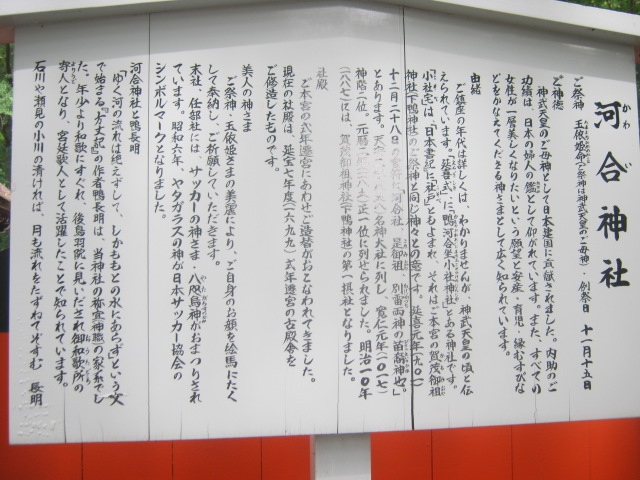 河合神社
かわ
ご祭神 玉依姫命(ご祭神は神武天皇のご母神)・例祭日 十一月十五日
ご神徳
神武天皇のご母神として日本建国に貢献されました。内助のご
功績は、日本の婦人の鑑として仰がれています。また、すべての
女性が一層美しくなりたいという願望と安産・育児・縁むすびな
どをかなえてくださる神さまとして広く知られています。
由緒
ご鎮座の年代は詳しくは、わかりませんが、神武天皇の頃と伝
えられています。『延喜式』に「鴨河合坐小社神社」とある神社です。
小社宅は『日本書紀』に「社戸」ともよまれ、それはご本宮の賀茂御祖
神社(下鴨神社)のご祭神と同じ神々との意です。延喜元年(九〇一)
十二月二十八日の官符に「河合社、是御祖、別雷両神の苗裔神也」
とあります。名神大社に列し、寛仁元年(一〇一七)
神階二位。元暦正一位に列せられました。明治一〇年
(一八七七)には、賀茂御祖神社(下鴨神社)の第一摂社となりました。
社殿
ご本宮の式年遷宮にあわせご造替がおこなわれてきました。
現在の社殿は、延宝七年度(一六七九)式年遷宮の古殿舎を
ご修造したものです。
美人の神さま
ご祭神・玉依姫さまの美麗により、ご自身のお顔を絵馬にたく
して奉納し、ご祈願していただきます。
末社、任部社には、サッカーの神さま・八咫烏神がおまつりされ
やたがらすのかみ
ています。昭和六年、ヤタガラスの神が日本サッカー協会の
シンボルマークとなりました。
河合神社と鴨長明
「ゆく河の流れは絶えずして、しかももとの水にあらず」という文
で始まる『方丈記』の作者鴨長明は、当神社の祢宜(神職)の家系でし
た。年少より和歌にすぐれ、後鳥羽院に見いだされ御和歌所の
寄人となり、宮廷歌人として活躍したことで知られています。
石川や瀬見の小川の清ければ、月も流れをたずねてぞすむ 長明